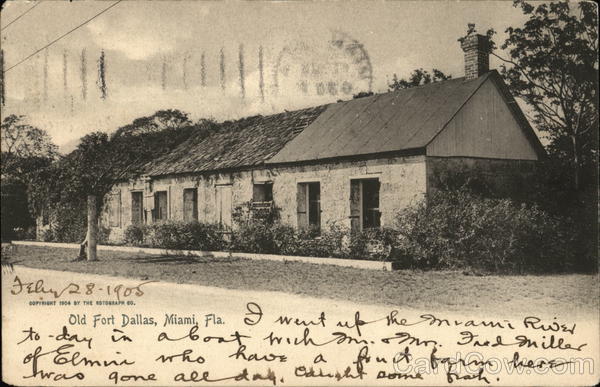 Feby 28-1905
COPYRIGHT 1904 BY THE ROTOGRAPH CO.
Old Fort Dallas, Miami, Fla.
I went up the Miami River
to-day in a boat with Mr. & Mrs. Fred Miller
of Elmira who have a fruit farm here
was gone all day. caught some fish.
CardCow.com